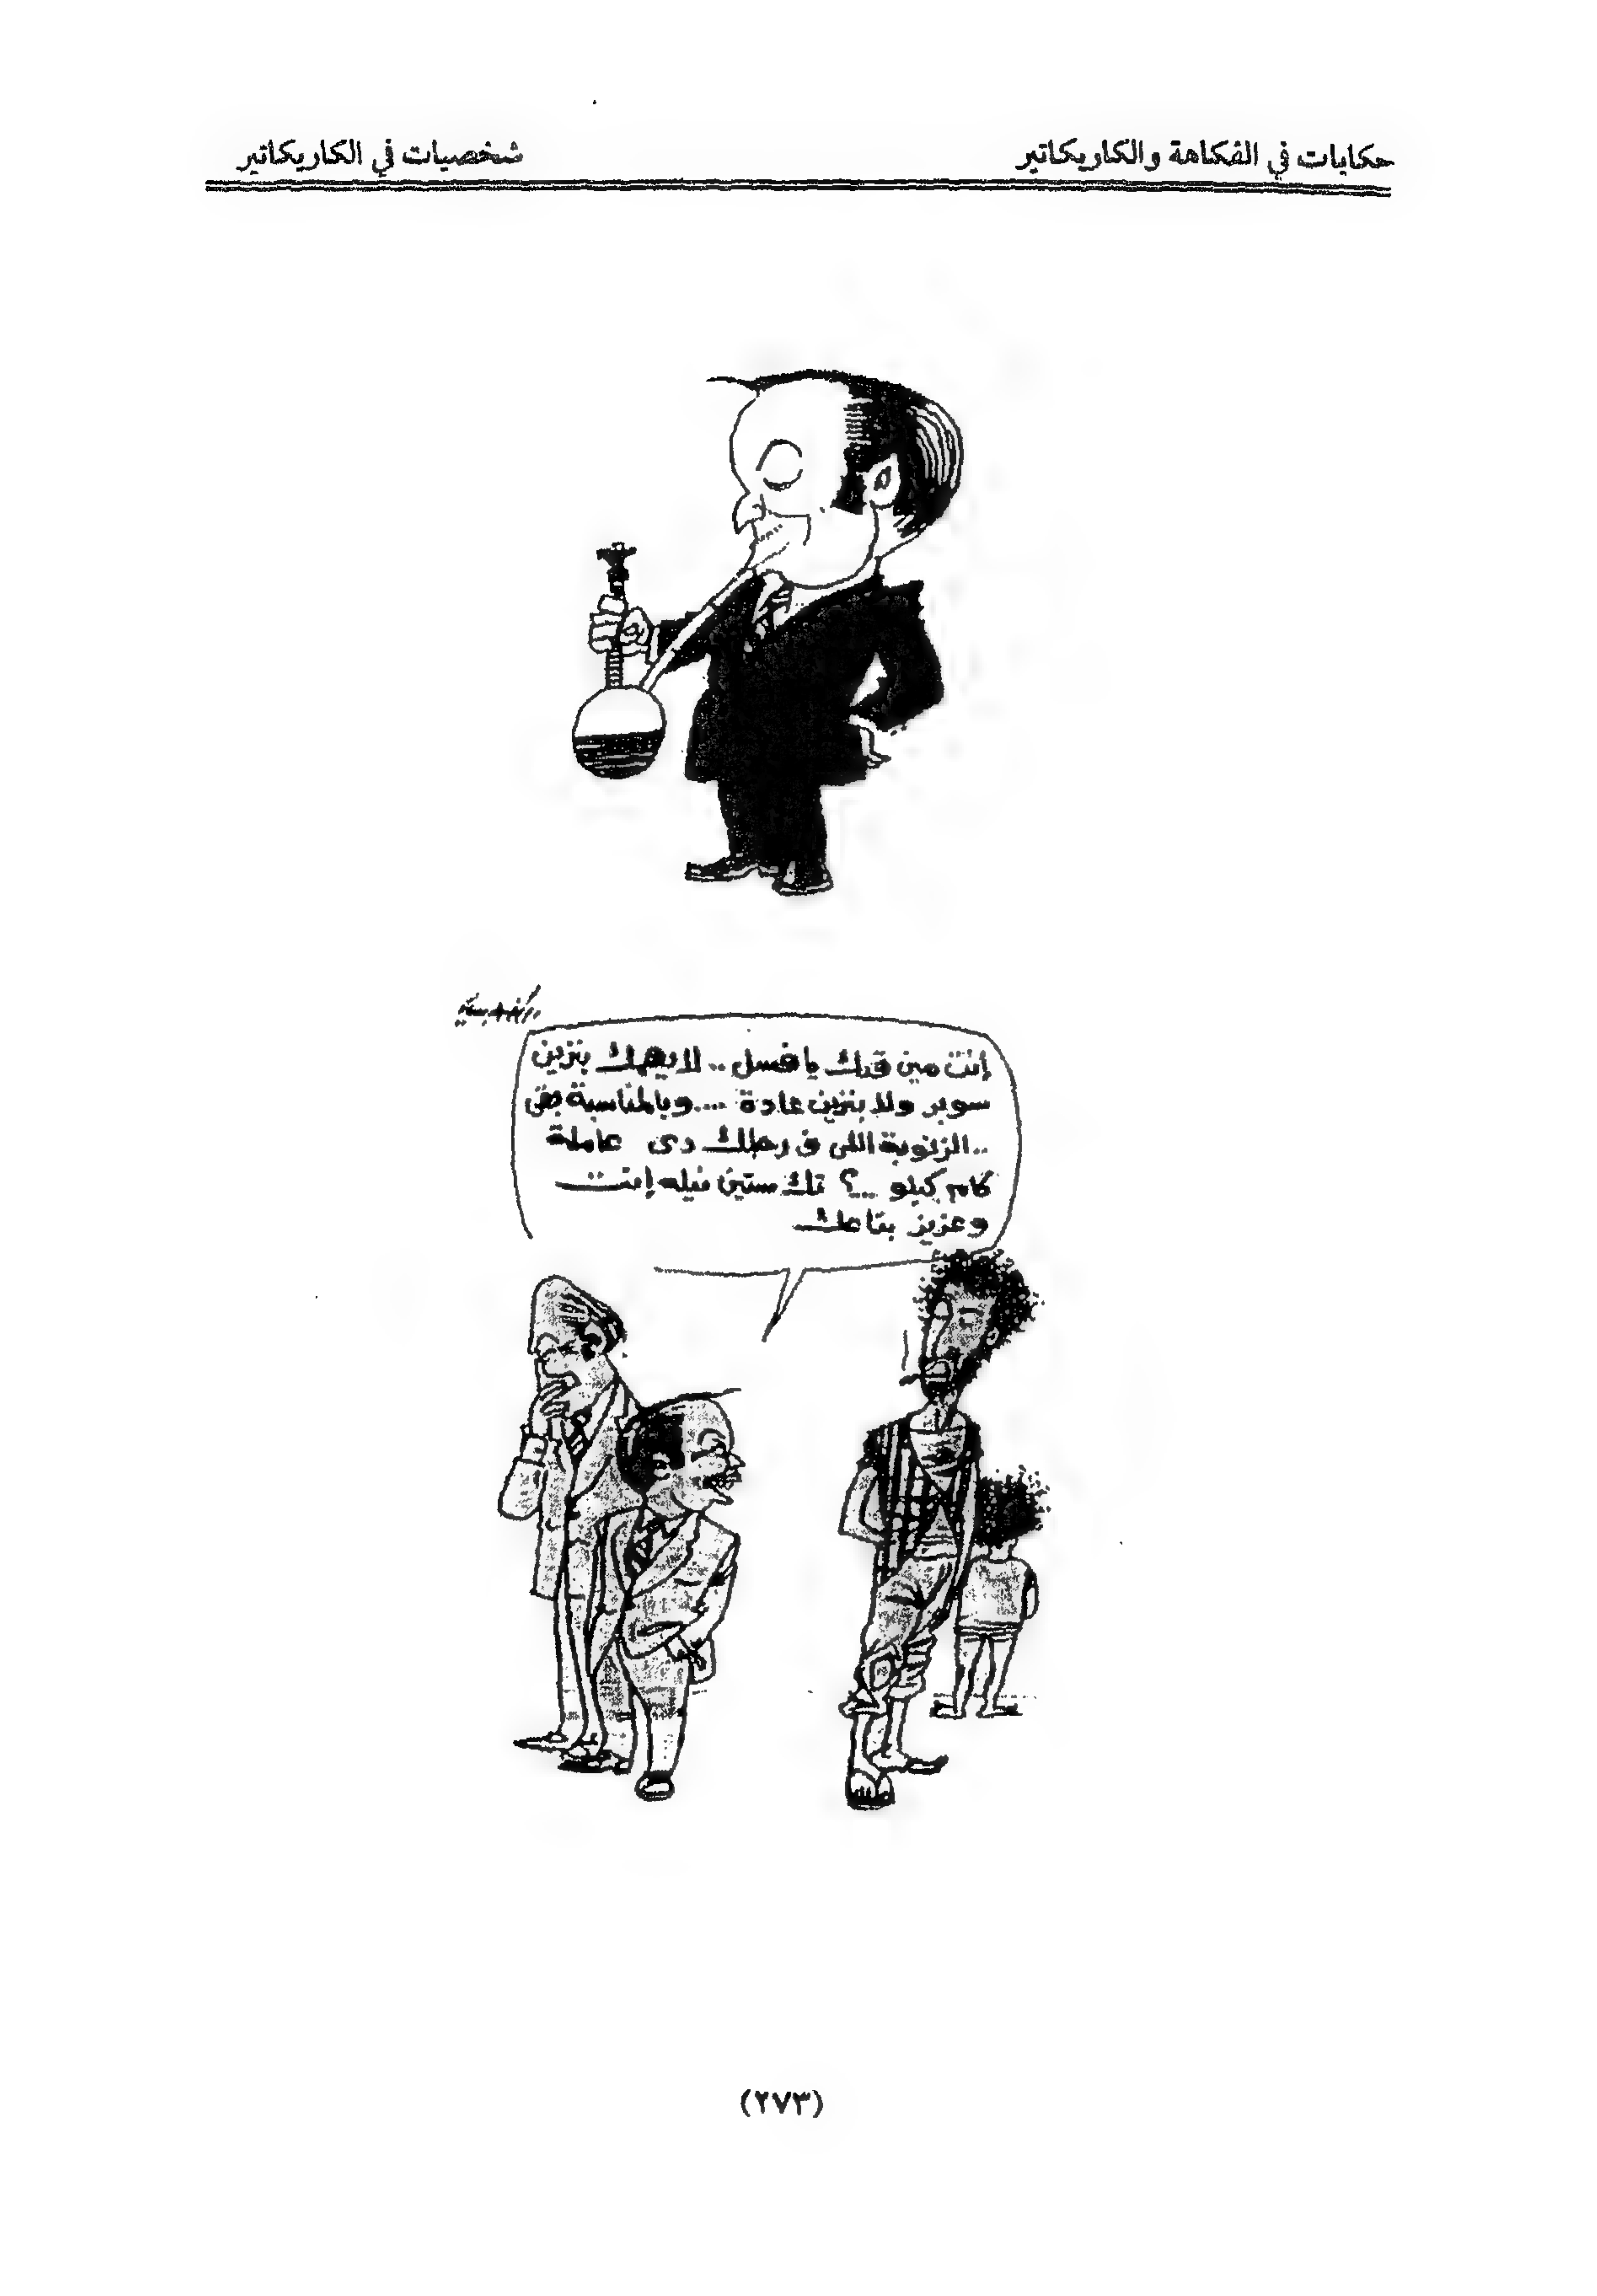 حكايات في الفكاهة والكاريكاتير
شخصيات في الكاريكاتير
إنت مين قدك يا فسل .. لا يهمك بنزين
سوبر ولا بنزين عادة .... وبالمناسبة بقى
.. الزنوبة اللى ف رجلك دى عاملة
كام كيلو ...؟ تك ستين نيله إنت
وعزيز بتاعك
(٢٧٣)